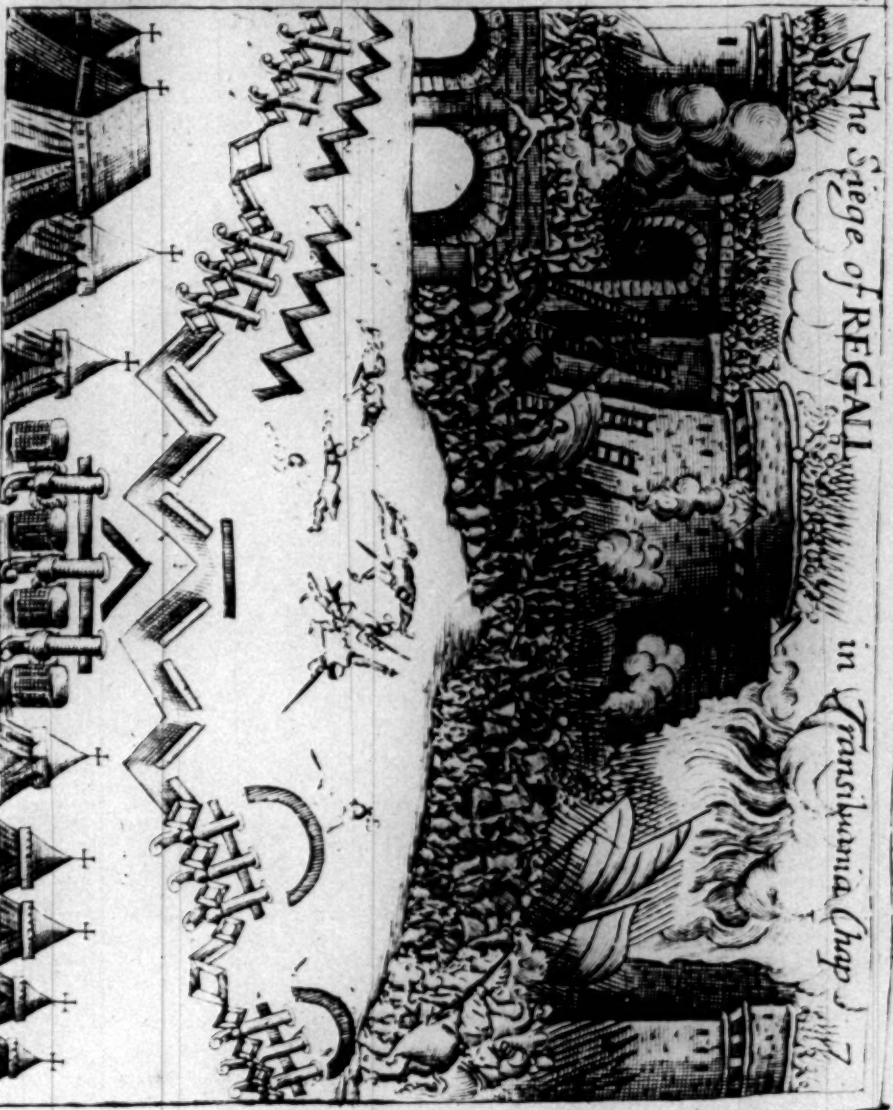 The Siege of REGALL in Transilvania Chap 7